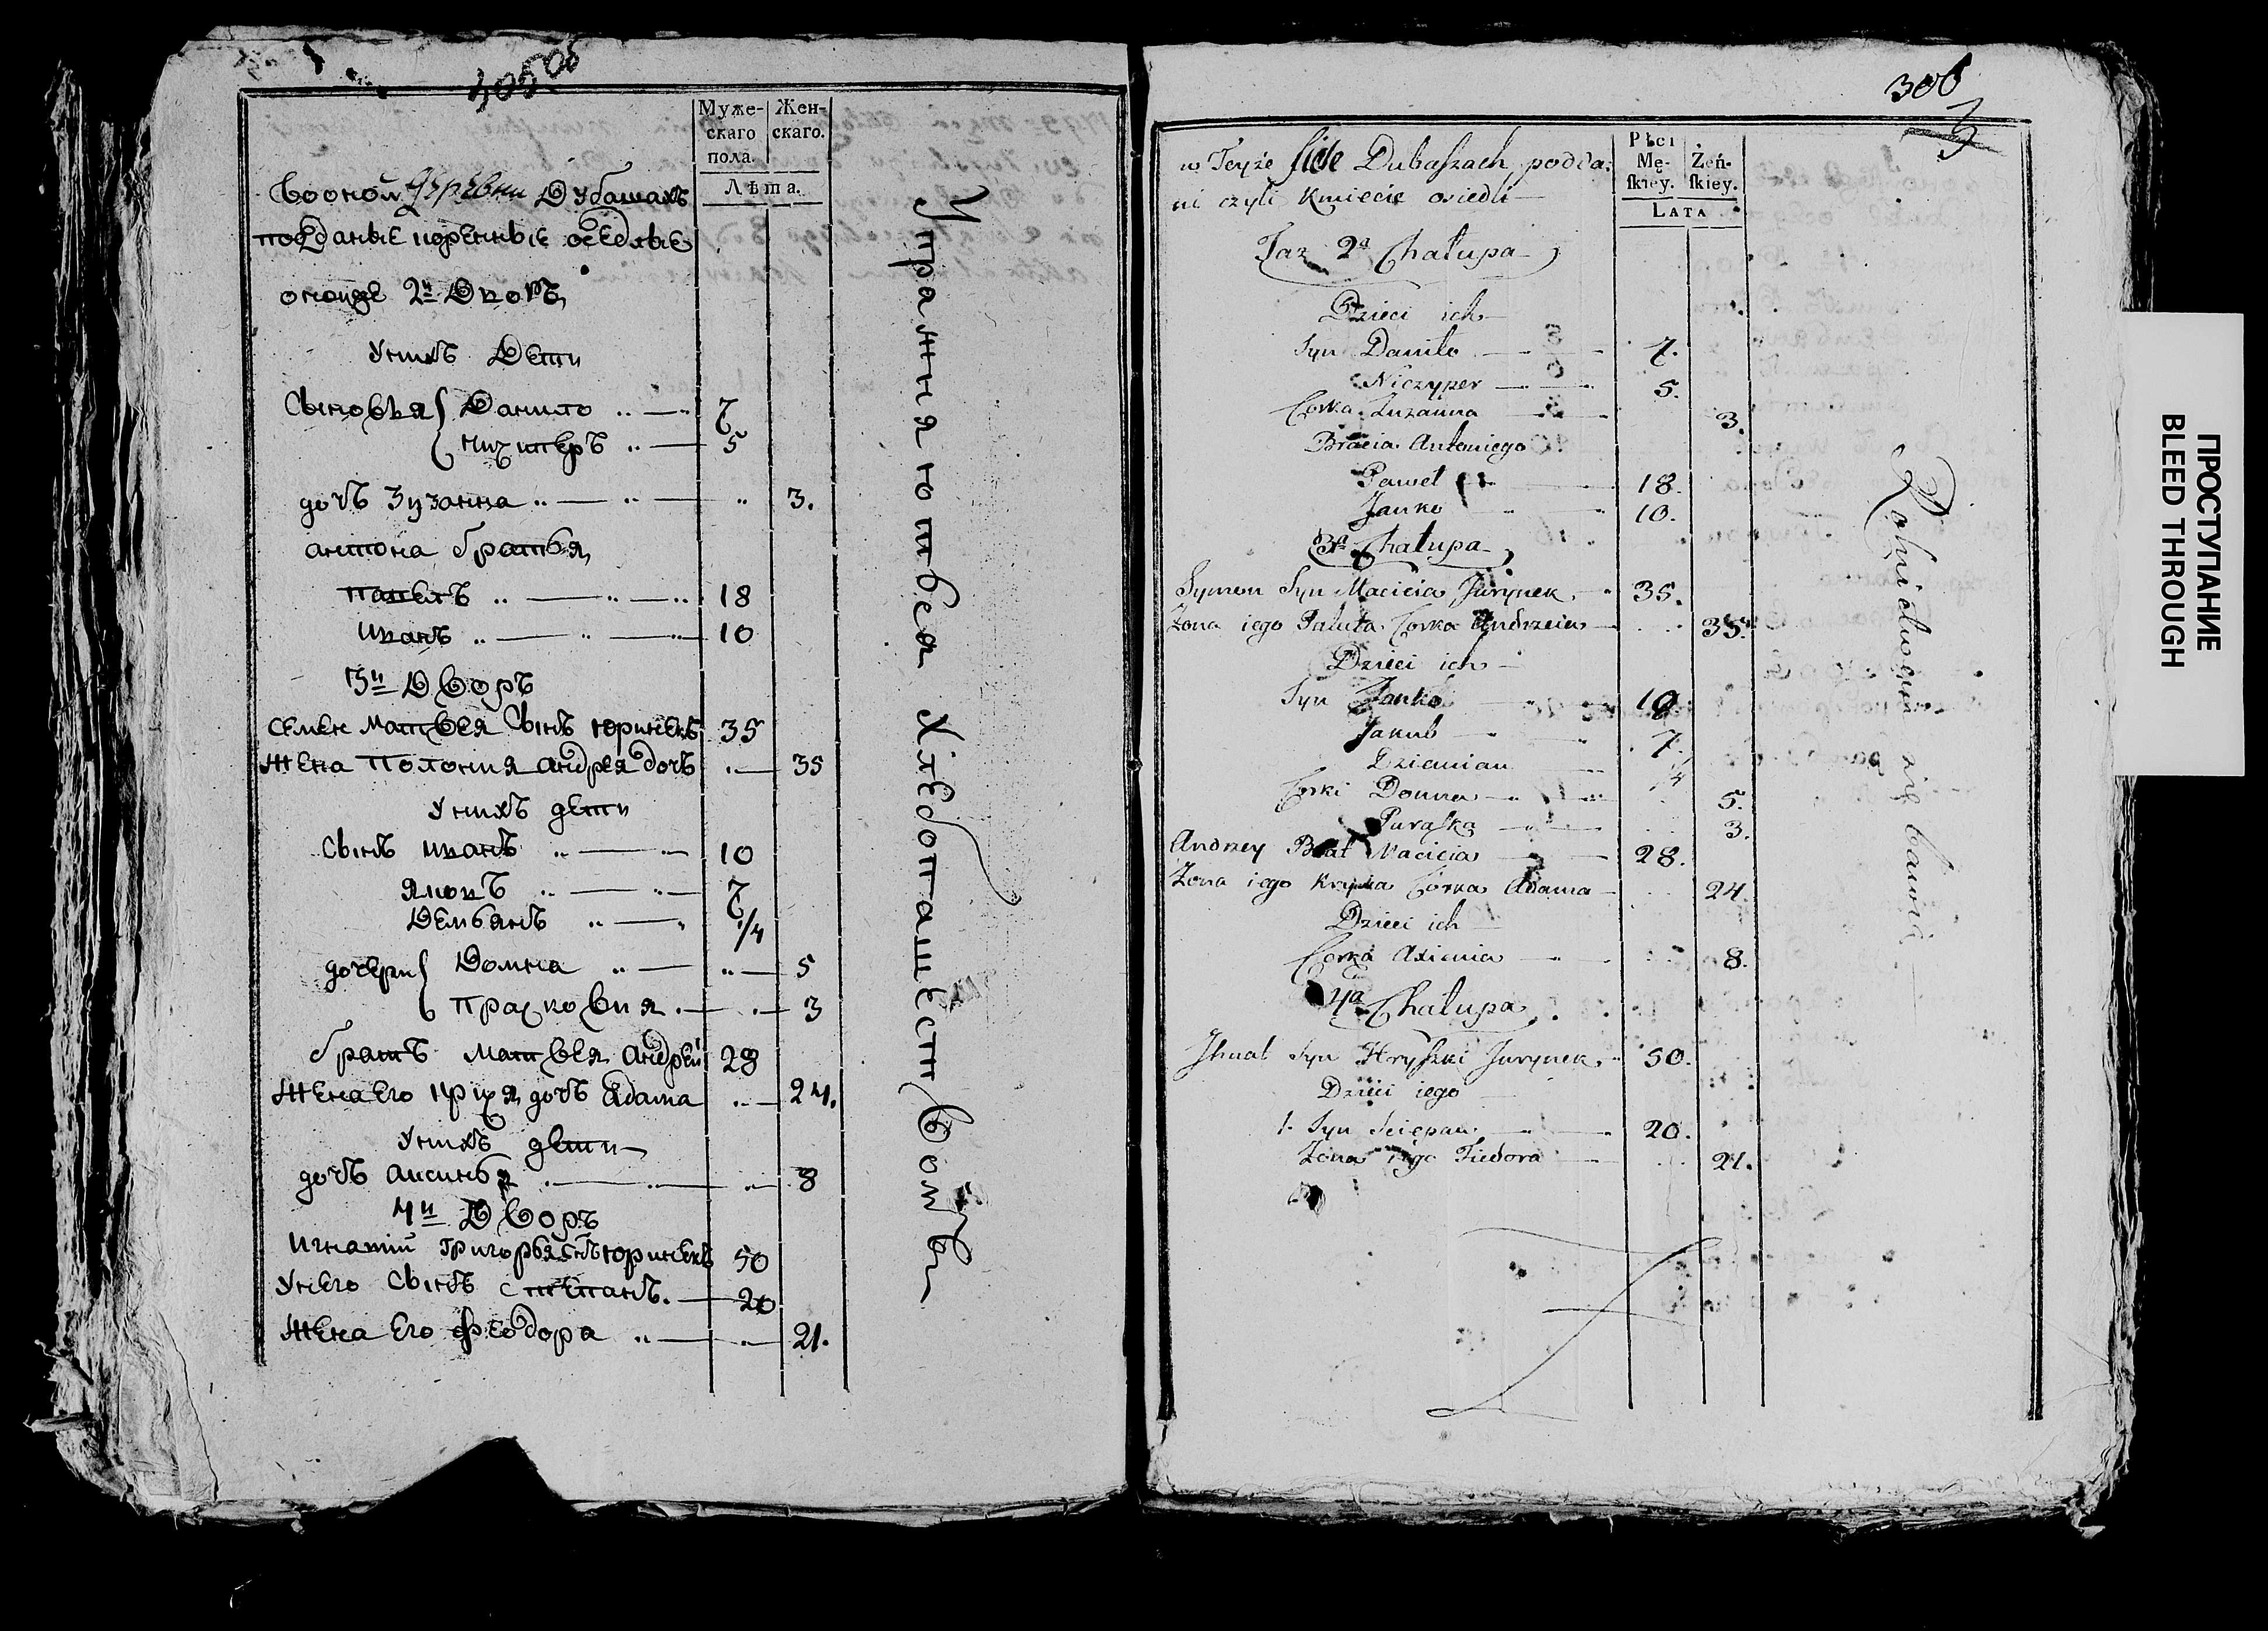 305 об
Муже-
скаго
пола.
Жен-
скаго.
Лѣта.
Воонои деревни Дубашахъ
подданые коренные оседлые
оконце 2й Дворъ
Унихъ Дети
Сыновья Данило 7
Ничиперъ 5
дочъ Зузанна 3.
антона братья
павелъ 18
иванъ 10
3й Дворъ
Семен матвея Сынъ юринекъ 35
жена Полония андрея дочъ 35
Унихъ дети
Сынъ иванъ 10
яковъ 7
Демьянъ /4
дочери Домна 5
прасковия 3
братъ матвея андреи 28
жена Его крыся дочъ Адама 24.
Унихъ дети
дочъ аксинья 8
4й Дворъ
Игнатий григорья снъ юринекъ 50
Унего Сынъ степанъ. 20
жена Его феодора 21.
Упражняютъся Хлебопашествомъ
306
3
Płci
Mę-
ſkiey.
Żeń-
ſkiey.
LATA
w Teyże Sile Dubaſzach podda:
ni czyli Kmiecie osiedli
Taz 2a Chałupa
Dzieci ich
Syn Daniło 7.
Niczyper 5.
Corka Zuzanna 3.
Bracia Antoniego
Paweł 18.
Janko 10.
3a Chałupa
Symon Syn Macieia Jurynek 35.
Zona iego Paluta Corka Andrzeia 35.
Dzieci ich
Syn Janko 10
Jakub 7.
Dziamian /4
Corki Domna 5.
Puraſka 3.
Andrzey Brat Macieia 28.
Zona iego Krysia Corka Adama 24
Dzieci ich
Corka Axienia 8.
4a Chałupa
Jhnat Syn Hryſzki Jurynek 50.
Dzieci iego
1. Syn Sciepan 20.
Zona iego Fiedora 21.
Rolnictwem się bawią
ПРОСТУПАНИЕ
BLEED THROUGH